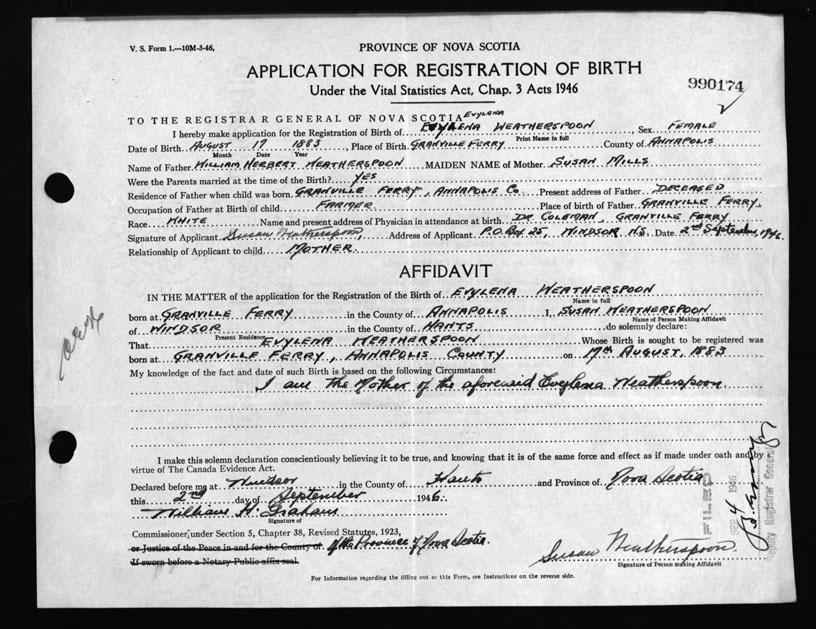 V. S. Form 1.—10M-3-46,
PROVINCE OF NOVA SCOTIA
APPLICATION FOR REGISTRATION OF BIRTH
Under the Vital Statistics Act, Chap. 3 Acts 1946
990174
TO THE REGISTRAR GENERAL OF NOVA SCOTIA
EVYLENA
I hereby make application for the Registration of Birth of EVYLENA WEATHERSPOON, Sex FEMALE
Print Name in full
Date of Birth AUGUST 17 1883, Place of Birth GRANVILLE FERRY County of ANNAPOLIS
Month Date Year
Name of Father WILLIAM HERBERT WEATHERSPOON MAIDEN NAME of Mother SUSAN MILLS
Were the Parents married at the time of the Birth? YES
Residence of Father when child was born GRANVILLE FERRY, ANNAPOLIS CO Present address of Father DECEASED
Occupation of Father at Birth of child FARMER Place of birth of Father GRANVILLE FERRY.
Race WHITE Name and present address of Physician in attendance at birth DR COLEMAN, GRANVILLE FERRY
Signature of Applicant Susan Weatherspoon, Address of Applicant P.O. BOX 25, WINDSOR N.S. Date 2nd September, 1946
Relationship of Applicant to child MOTHER
AFFIDAVIT
IN THE MATTER of the application for the Registration of the Birth of EVYLENA WEATHERSPOON
Name in full
born at GRANVILLE FERRY in the County of ANNAPOLIS I, SUSAN WEATHERSPOON
Name of Person Making Affidavit
of WINDSOR in the County of HANTS do solemnly declare:
Present Residence
That EVYLENA WEATHERSPOON Whose Birth is sought to be registered was
born at GRANVILLE FERRY, ANNAPOLIS COUNTY on 17th AUGUST, 1883
My knowledge of the fact and date of such Birth is based on the following Circumstances:
I am the Mother of the aforesaid Evylena Weatherspoon
I make this solemn declaration conscientiously believing it to be true, and knowing that it is of the same force and effect as if made under oath and by
virtue of The Canada Evidence Act.
Declared before me at Windsor in the County of Hants and Province of Nova Scotia
this 2nd day of September 1946.
William H. Graham
Signature of
Commissioner, under Section 5, Chapter 38, Revised Statutes, 1923,
or Justice of the Peace in and for the County of of the Province of Nova Scotia.
If sworn before a Notary Public affix seal.
Susan Weatherspoon
Signature of Person making Affidavit
For Information regarding the filling out of this Form, see Instructions on the reverse side.
FILED
SEP 4 1946
Deputy Registrar General